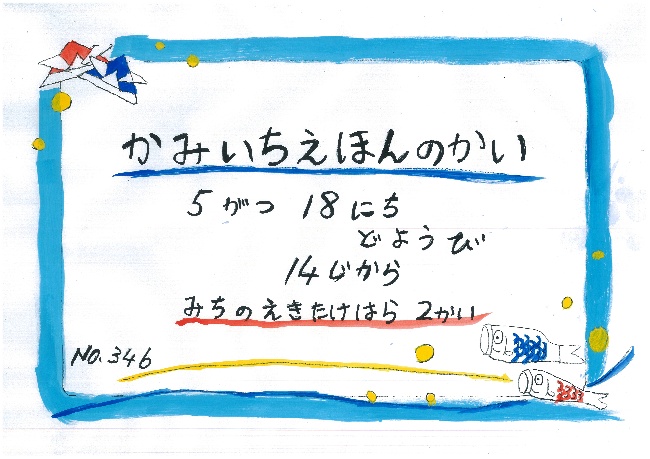 かみいちえほんのかい
5がつ 18にち
どようび
14じから
みちのえきたけはら 2かい
NO.346